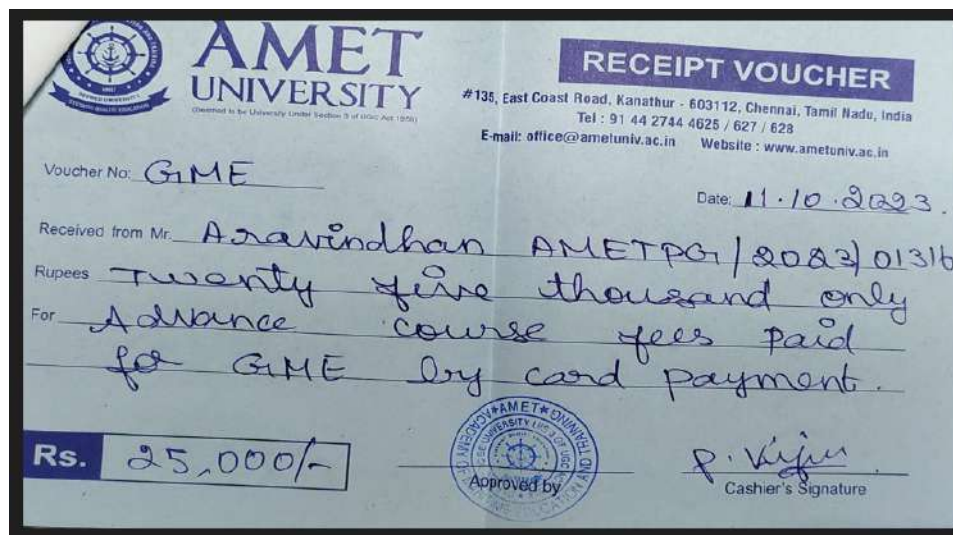 AMET
UNIVERSITY
(Deemed to be University Under Section 3 of UGC Act 1956)
RECEIPT VOUCHER
#135, East Coast Road, Kanathur - 603112, Chennai, Tamil Nadu, India
Tel : 91 44 2744 4625 / 627 / 628
E-mail: office@ametuniv.ac.in Website : www.ametuniv.ac.in
Voucher No: GME
Date: 11.10.2023.
Received from Mr. Aravindhan AMETPG/2023/01316
Rupees Twenty five thousand only
For Advance course fees paid
for GME by card payment.
Rs. 25,000/-
Approved by
P. Viji
Cashier's Signature